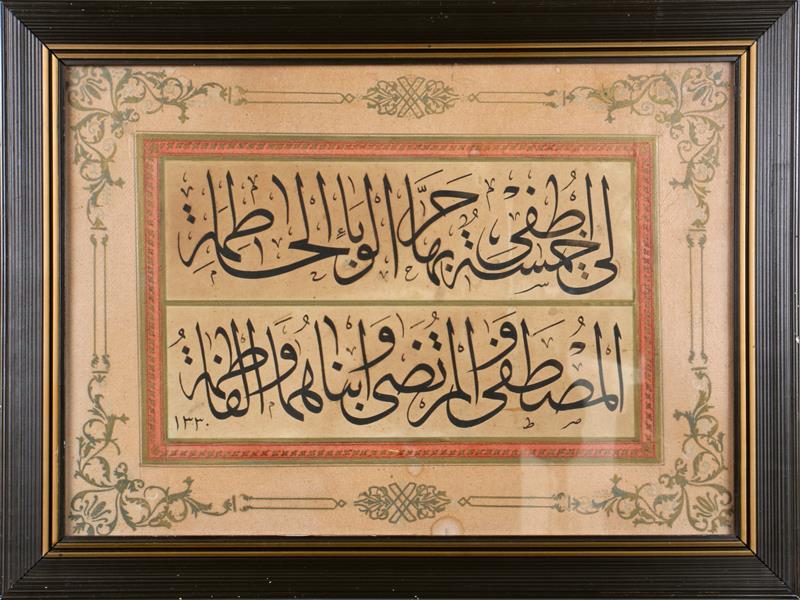 لي خمسة اطفي بها حر الوباء الحاطمة
المصطفى والمرتضى وابناهما والفاطمة
١٣٣٠